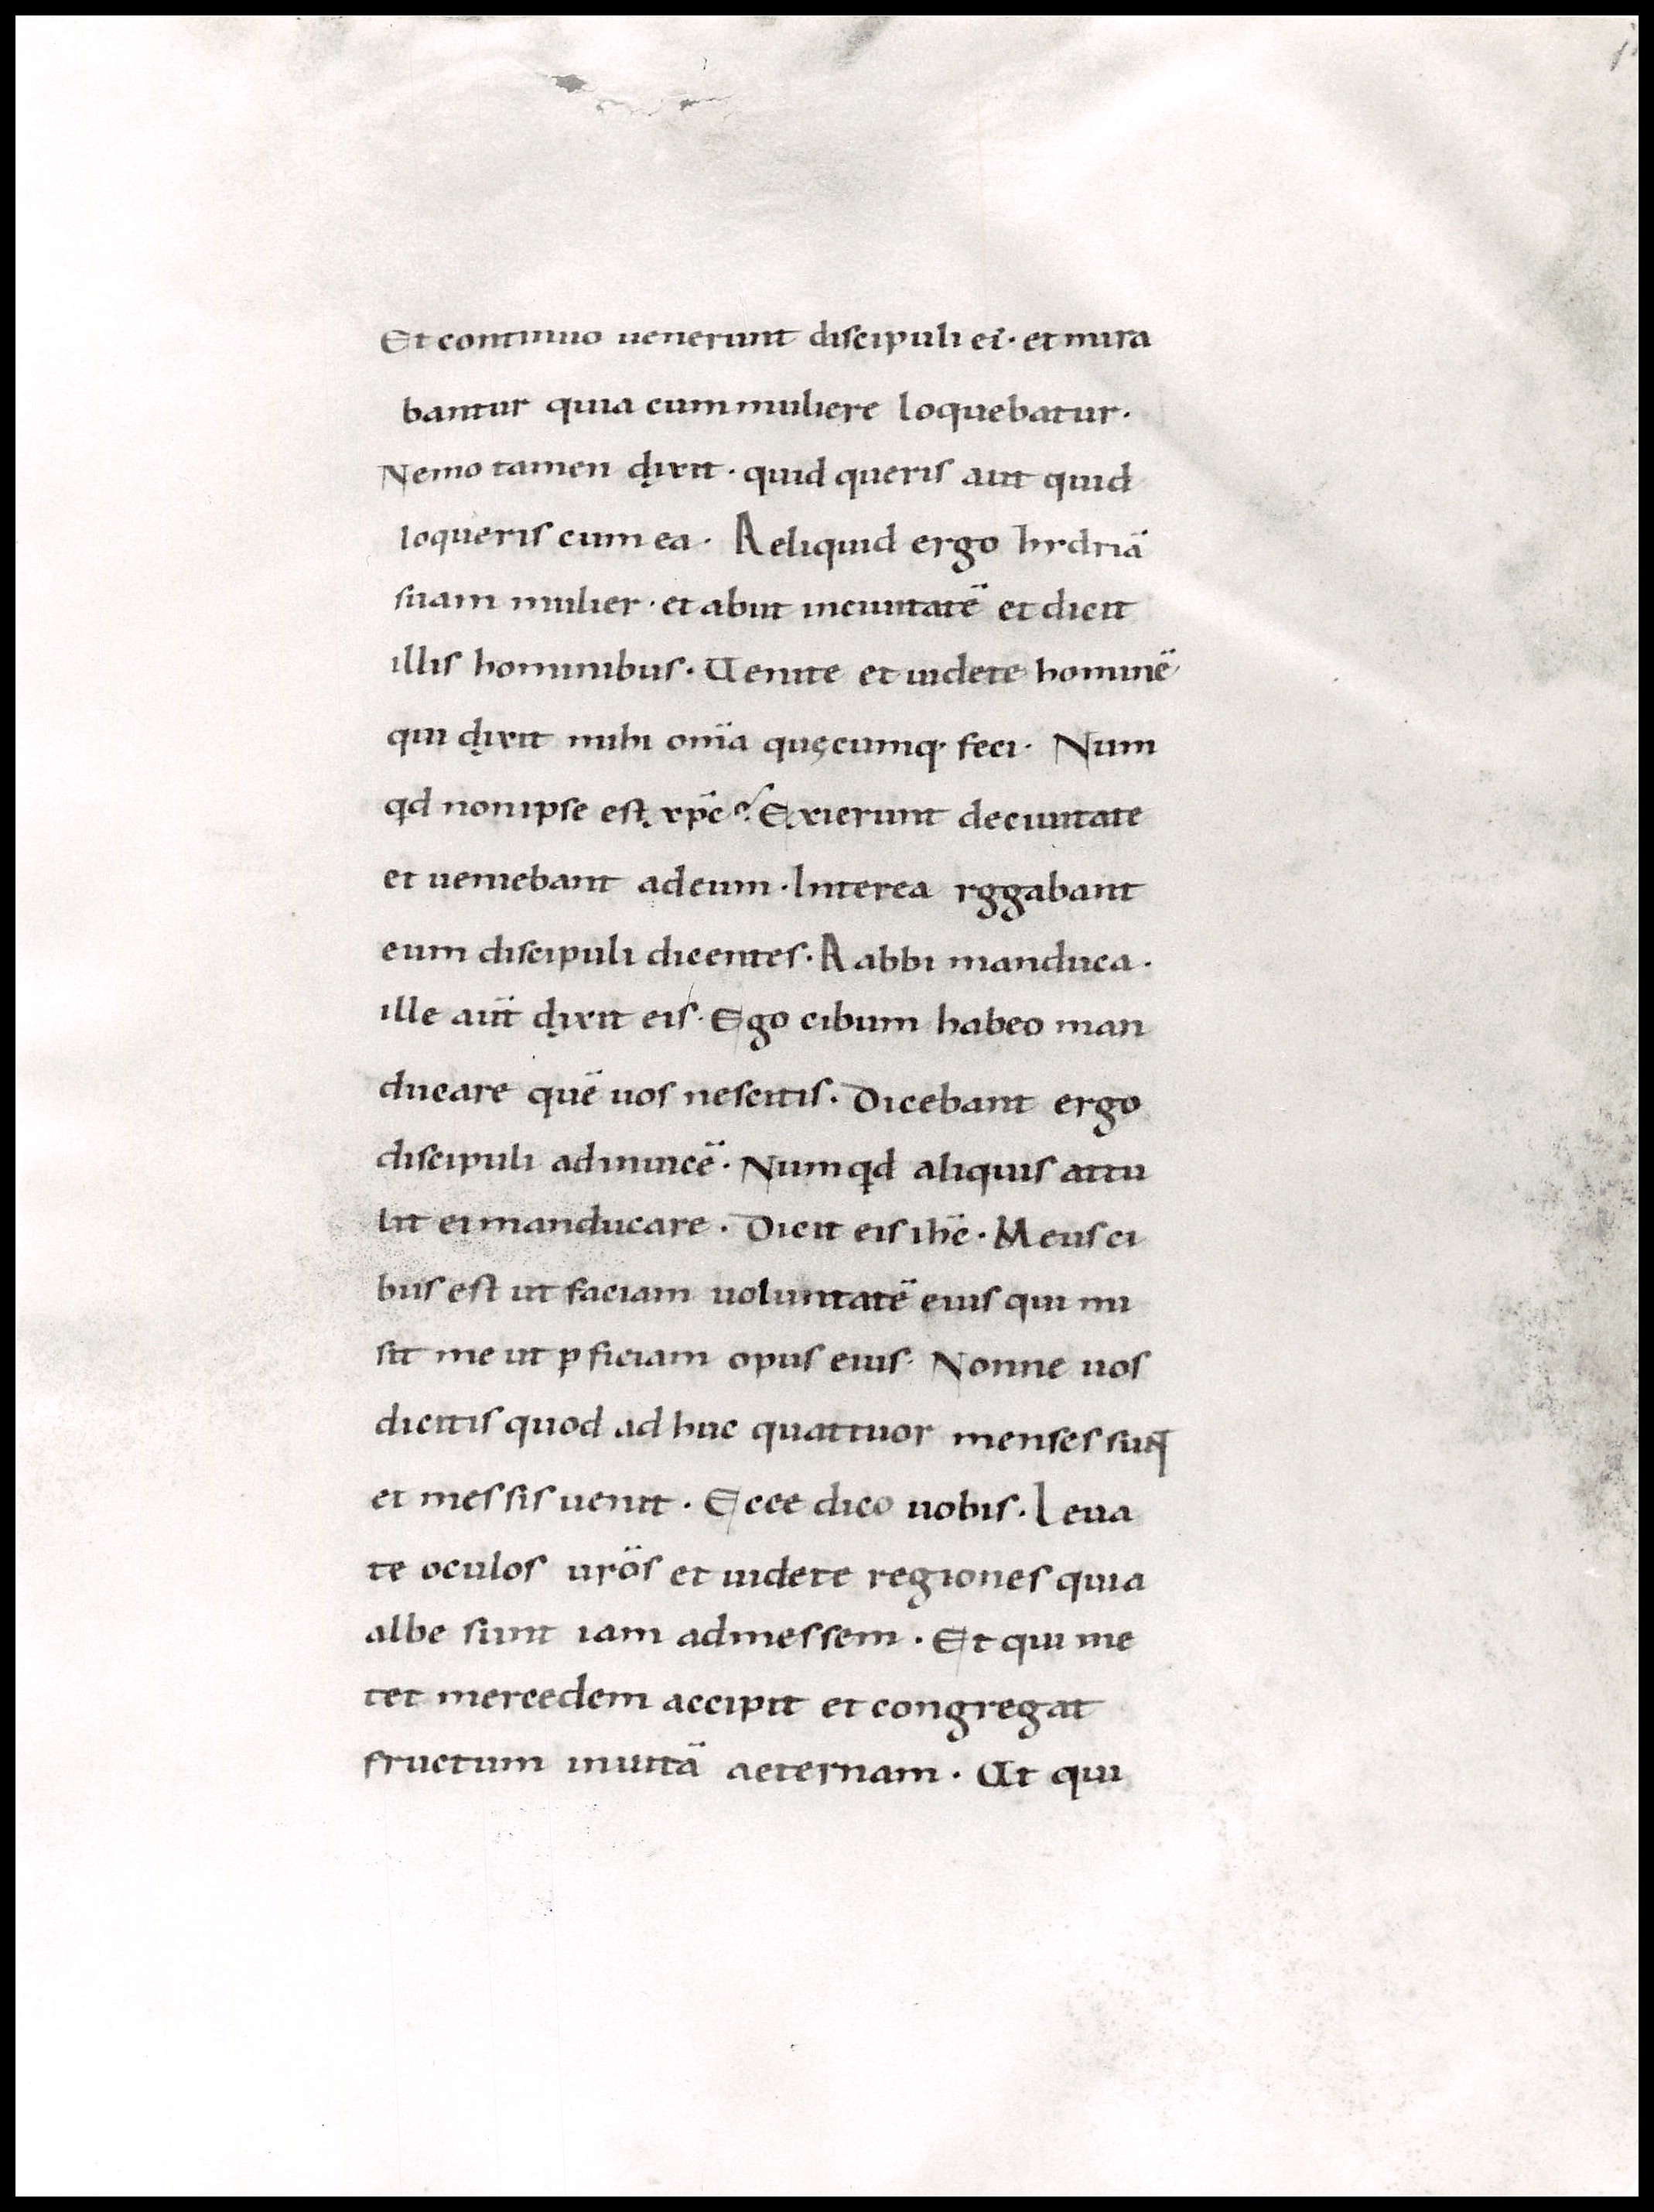 Et continuo uenerunt discipuli ei᾽· et mira
bantur quia cum muliere loquebatur·
Nemo tamen dixit· quid queris aut quid
loqueris cum ea· Reliquid ergo hydriā
suam mulier· et abiit inciuitatē et dicit
illis hominibus· Uenite et uidete hominē
qui dixit mihi om̄ia quęcumq· feci· Num
qd non ipse est xp̄c? Exierunt deciuitate
et ueniebant adeum· Interea roggabant
eum discipuli dicentes· Rabbi manduca·
ille aut̄ dixit eis· Ego cibum habeo man
ducare quē uos nescitis· Dicebant ergo
discipuli adinuicē· Numqd aliquis attu
lit ei manducare· Dicit eis ih̄c· Meus ci
bus est ut faciam uoluntatē eius qui mi
sit me ut ꝑficiam opus eius· Nonne uos
dicitis quod ad huc quattuor menses sunt
et messis uenit· Ecce dico uobis· Leua
te oculos ur̄os et uidete regiones quia
albe sunt iam admessem· Et qui me
tet mercedem accipit et congregat
fructum inuitā aeternam· Ut qui